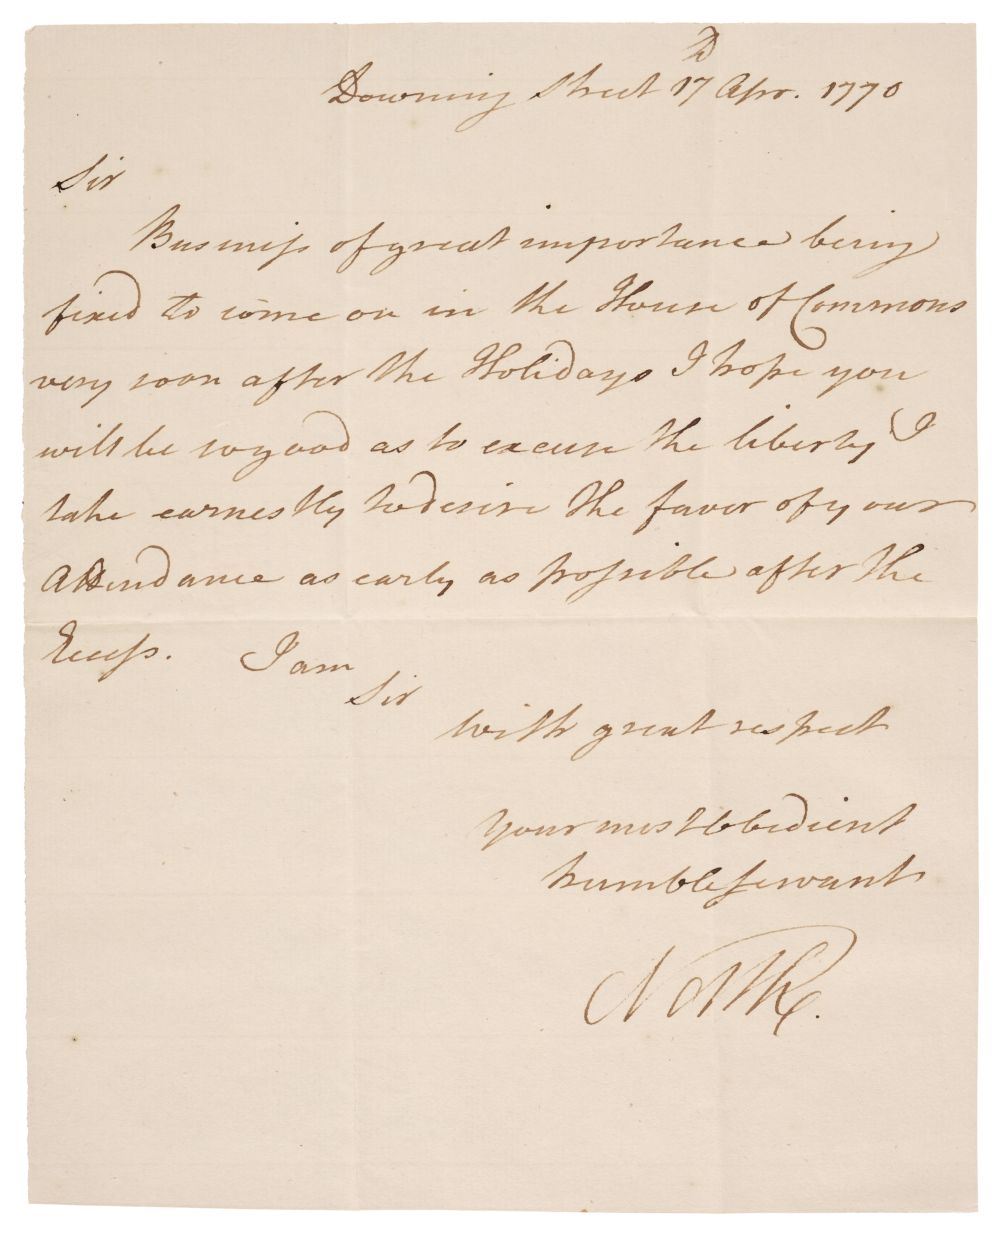 Downing Street 17th Apr. 1770
Sir
Business of great importance being
fixed to come on in the House of Commons
very soon after the Holidays I hope you
will be so good as to excuse the liberty I
take earnestly to desire the favor of your
Attendance as early as possible after the
Recess. I am
Sir
with great respect
Your most obedient
humble servant
North.